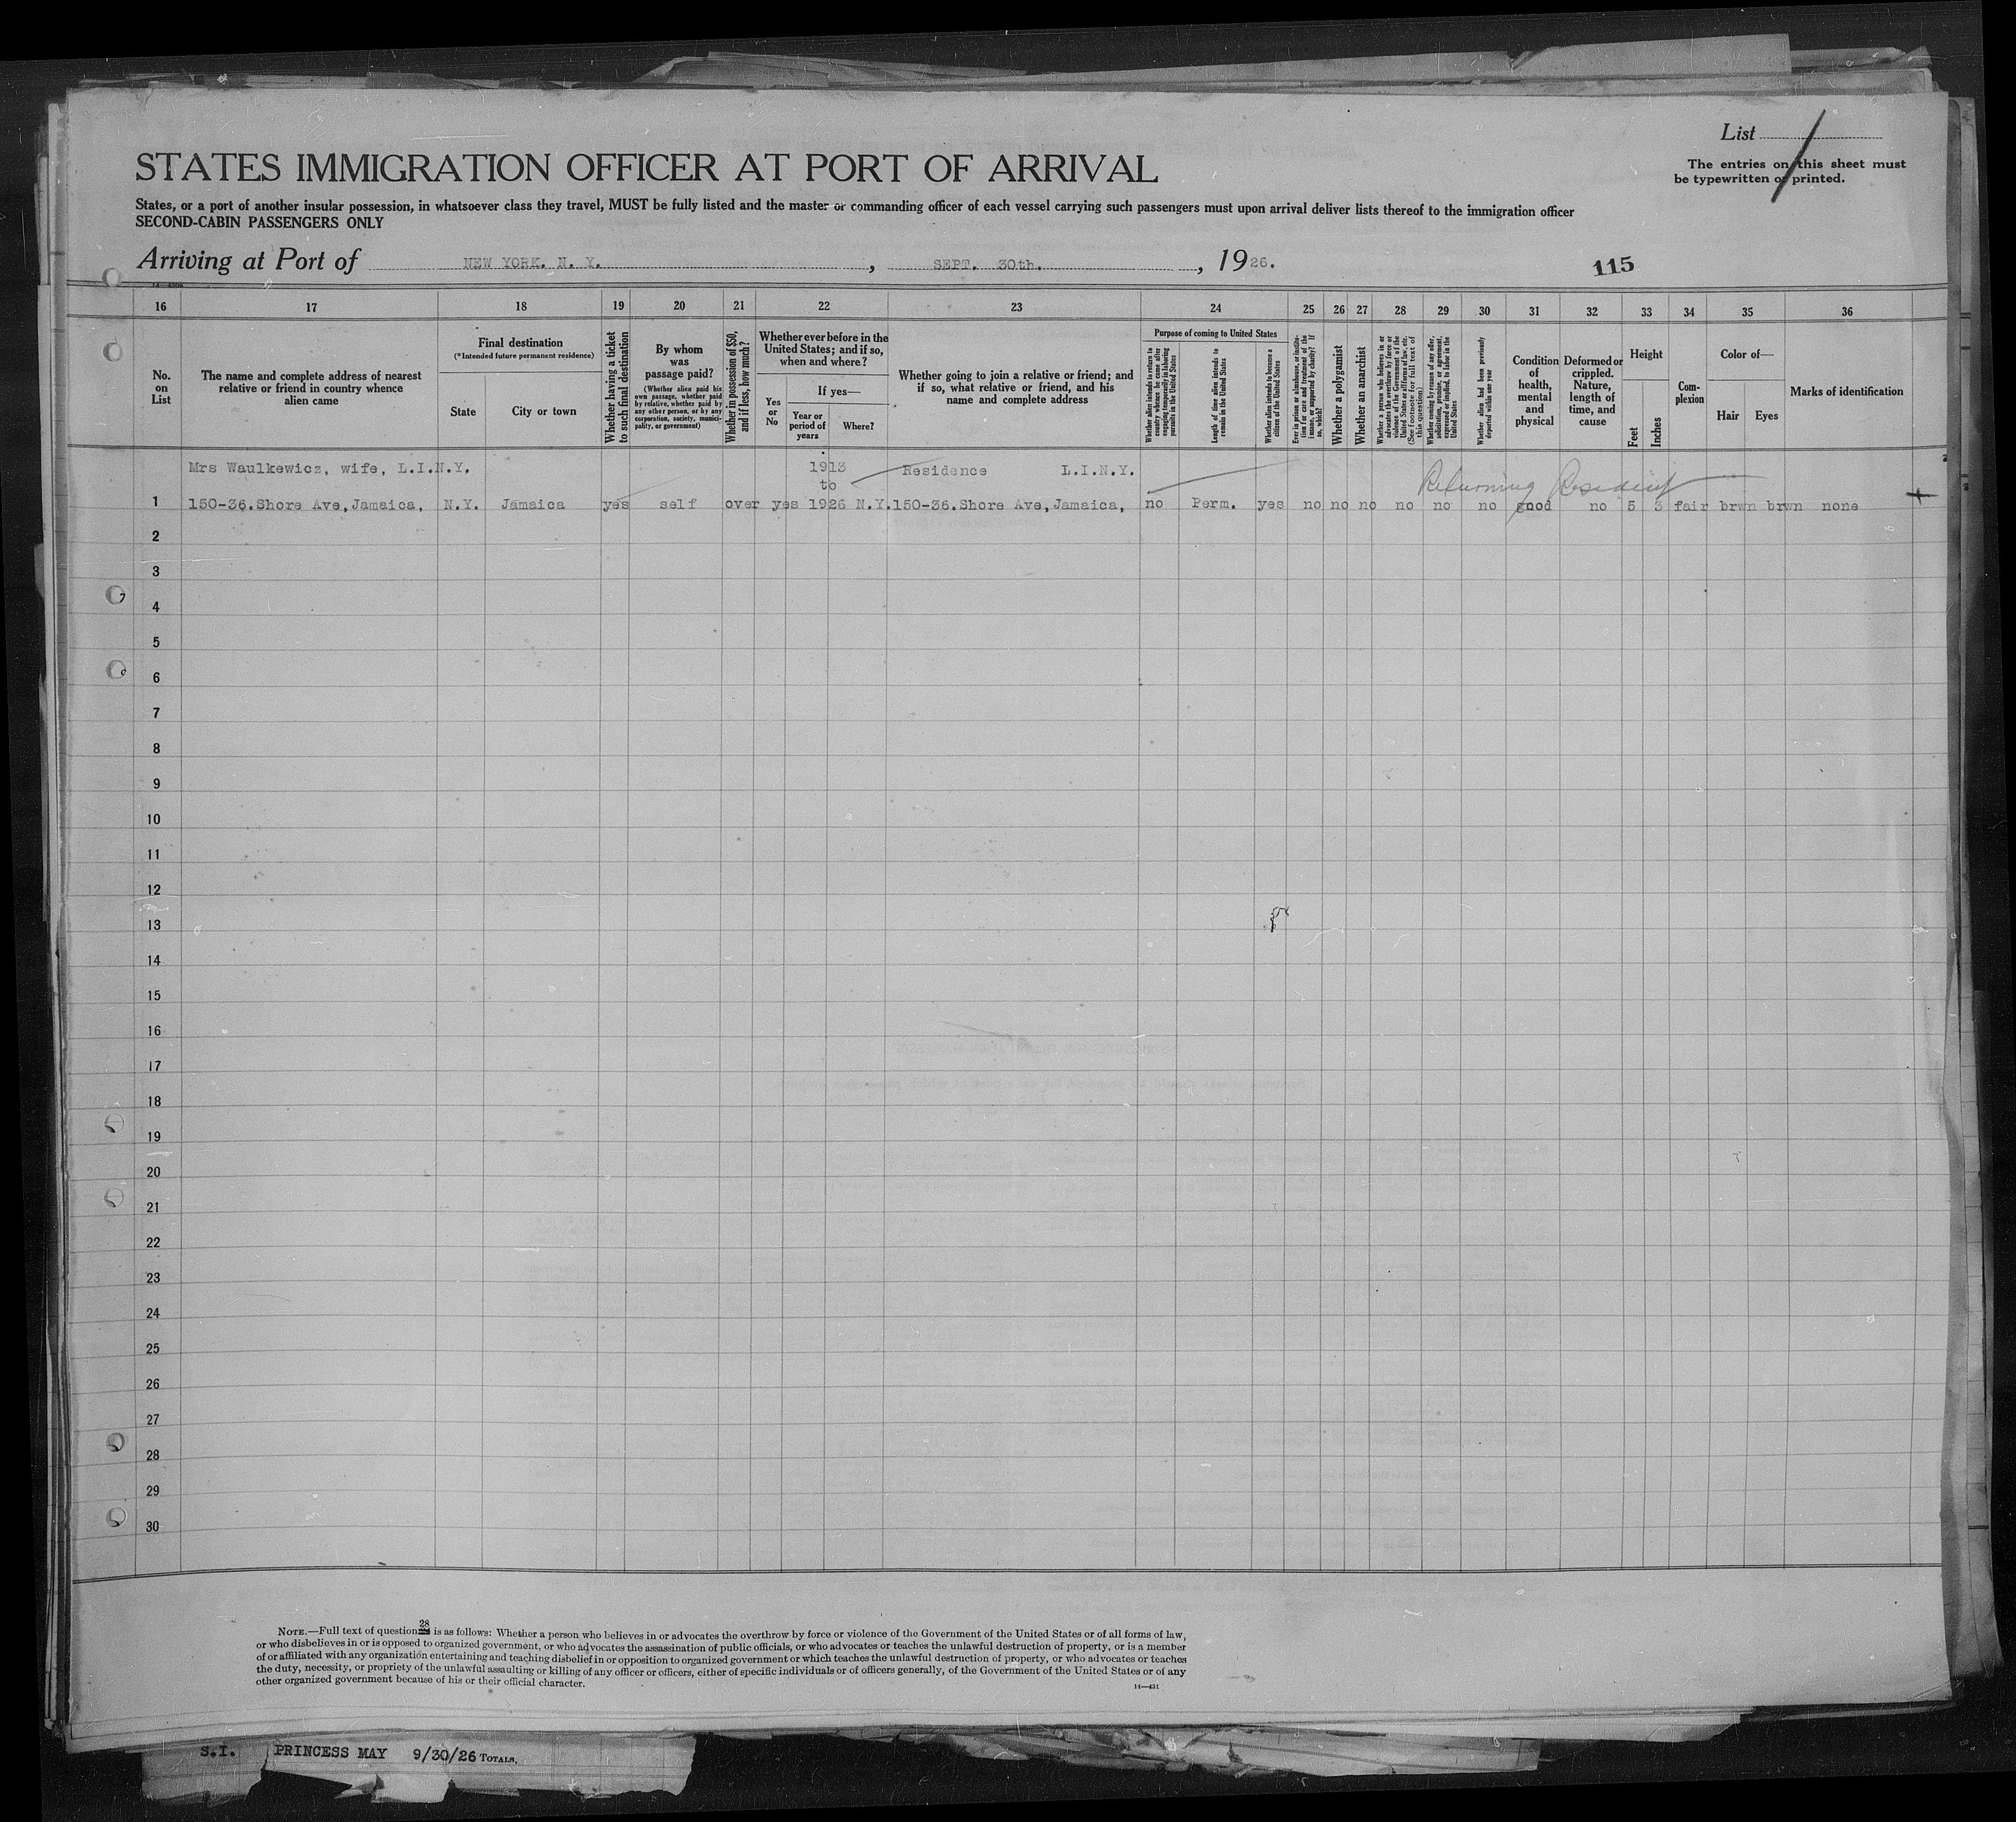 List
The entries on this sheet must
be typewritten or printed.
STATES IMMIGRATION OFFICER AT PORT OF ARRIVAL
States, or a port of another insular possession, in whatsoever class they travel, MUST be fully listed and the master or commanding officer of each vessel carrying such passengers must upon arrival deliver lists thereof to the immigration officer
SECOND-CABIN PASSENGERS ONLY
Arriving at Port of NEW YORK. N. Y. , SEPT. 30th. , 1926.
115
16 17 18 19 20 21 22 23 24 25 26 27 28 29 30 31 32 33 34 35 36
No. on List
The name and complete address of nearest relative or friend in country whence alien came
Final destination
(*Intended future permanent residence)
State
City or town
Whether having a ticket to such final destination
By whom was passage paid?
(Whether alien paid his own passage, whether paid by relative, whether paid by any other person, or by any corporation, society, municipality, or government)
Whether in possession of $50, and if less, how much?
Whether ever before in the United States; and if so, when and where?
Yes or No
If yes—
Year or period of years
Where?
Whether going to join a relative or friend; and if so, what relative or friend, and his name and complete address
Purpose of coming to United States
Whether alien intends to return to country whence he came after engaging temporarily in laboring pursuits in the United States
Length of time alien intends to remain in the United States
Whether alien intends to become a citizen of the United States
Ever in prison or almshouse, or institution for care and treatment of the insane, or supported by charity? If so, which?
Whether a polygamist
Whether an anarchist
Whether a person who believes in or advocates the overthrow by force or violence of the Government of the United States or all forms of law, etc. (See footnote for full text of this question)
Whether coming by reason of any offer, solicitation, promise, or agreement, expressed or implied, to labor in the United States
Whether alien had been previously deported within one year
Condition of health, mental and physical
Deformed or crippled. Nature, length of time, and cause
Height
Feet
Inches
Complexion
Color of—
Hair
Eyes
Marks of identification
Mrs Waulkewicz, wife, L.I.N.Y. 1913 Residence L.I.N.Y.
to
Returning Resident
1 150-36.Shore Ave,Jamaica, N.Y. Jamaica yes self over yes 1926 N.Y. 150-36.Shore Ave,Jamaica, no Perm. yes no no no no no no good no 5 3 fair brwn brwn none
2
3
4
5
6
7
8
9
10
11
12
13
14
15
16
17
18
19
20
21
22
23
24
25
26
27
28
29
30
NOTE.—Full text of question 28 is as follows: Whether a person who believes in or advocates the overthrow by force or violence of the Government of the United States or of all forms of law,
or who disbelieves in or is opposed to organized government, or who advocates the assassination of public officials, or who advocates or teaches the unlawful destruction of property, or is a member
of or affiliated with any organization entertaining and teaching disbelief in or opposition to organized government or which teaches the unlawful destruction of property, or who advocates or teaches
the duty, necessity, or propriety of the unlawful assaulting or killing of any officer or officers, either of specific individuals or of officers generally, of the Government of the United States or of any
other organized government because of his or their official character.
14—431
S.I. PRINCESS MAY 9/30/26 TOTALS,